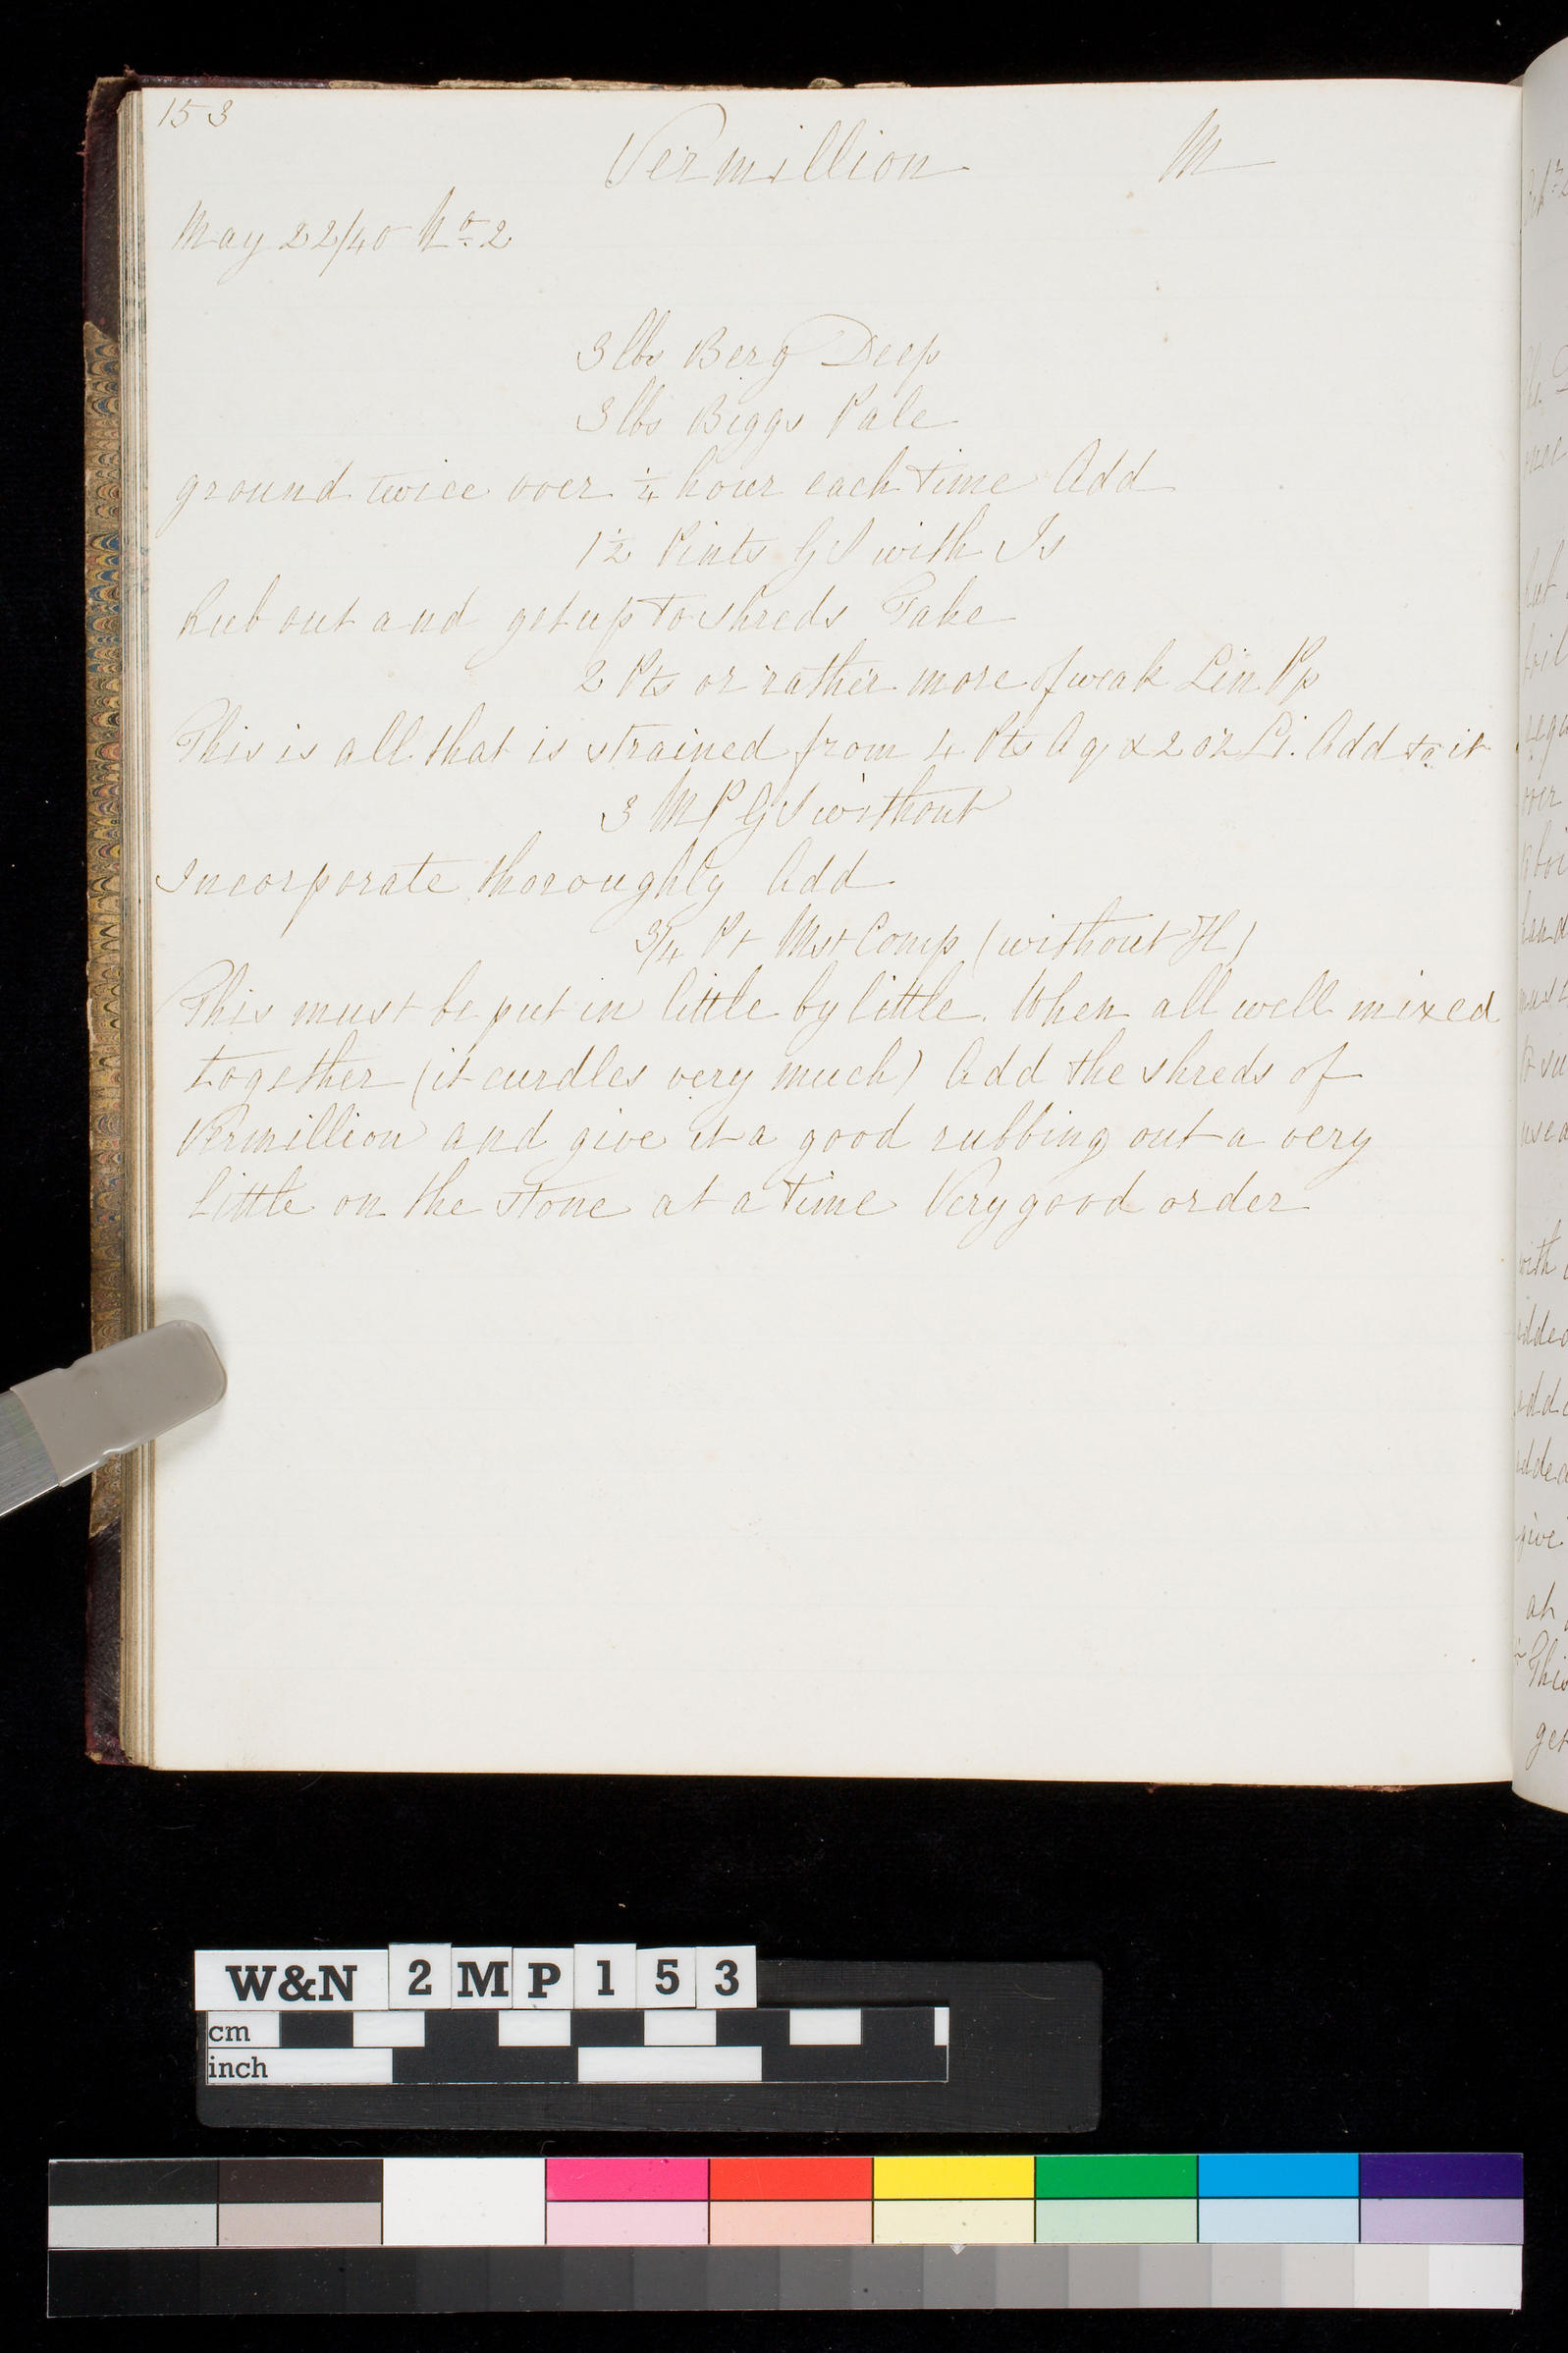 153
Vermillion M
May 22/40 No 2
3 lbs Berg Deep
3 lbs Biggs Pale
ground twice over 1/4 hour each time Add
1 1/2 Pints GS with Is
Rub out and get up to shreds Take
2 Pts or rather more of weak Lin Pp
This is all that is strained from 4 Pts Aq & 2 oz Li. Add to it
3 MP GS without
Incorporate thoroughly Add
3/4 Pt Mst Comp (without H)
This must be put in little by little. When all well mixed
together (it curdles very much) Add the shreds of
Vermillion and give it a good rubbing out a very
little on the stone at a time Very good order
W&N 2MP153
cm
inch